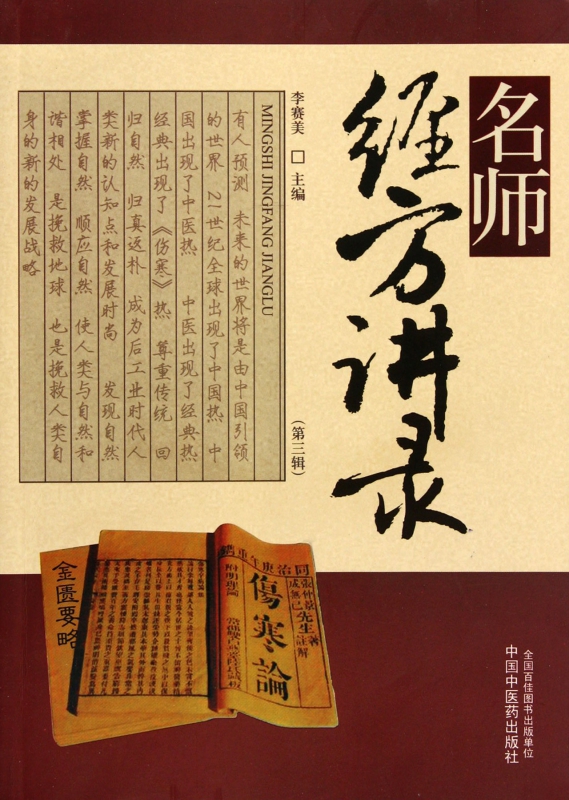 名师
经方讲录
(第三辑)
李赛美 □ 主编
MINGSHI JINGFANG JIANGLU
有人预测 未来的世界将是由中国引领
的世界 21世纪全球出现了中国热 中
国出现了中医热 中医出现了经典热
经典出现了《伤寒》热 尊重传统 回
归自然 归真返朴 成为后工业时代人
类新的认知点和发展时尚 发现自然
掌握自然 顺应自然 使人类与自然和
谐相处 是挽救地球 也是挽救人类自
身的新的发展战略
同治庚午年重鐫
張仲景著
成無己先生註解
傷寒論
金匮要略
全国百佳图书出版单位
中国中医药出版社